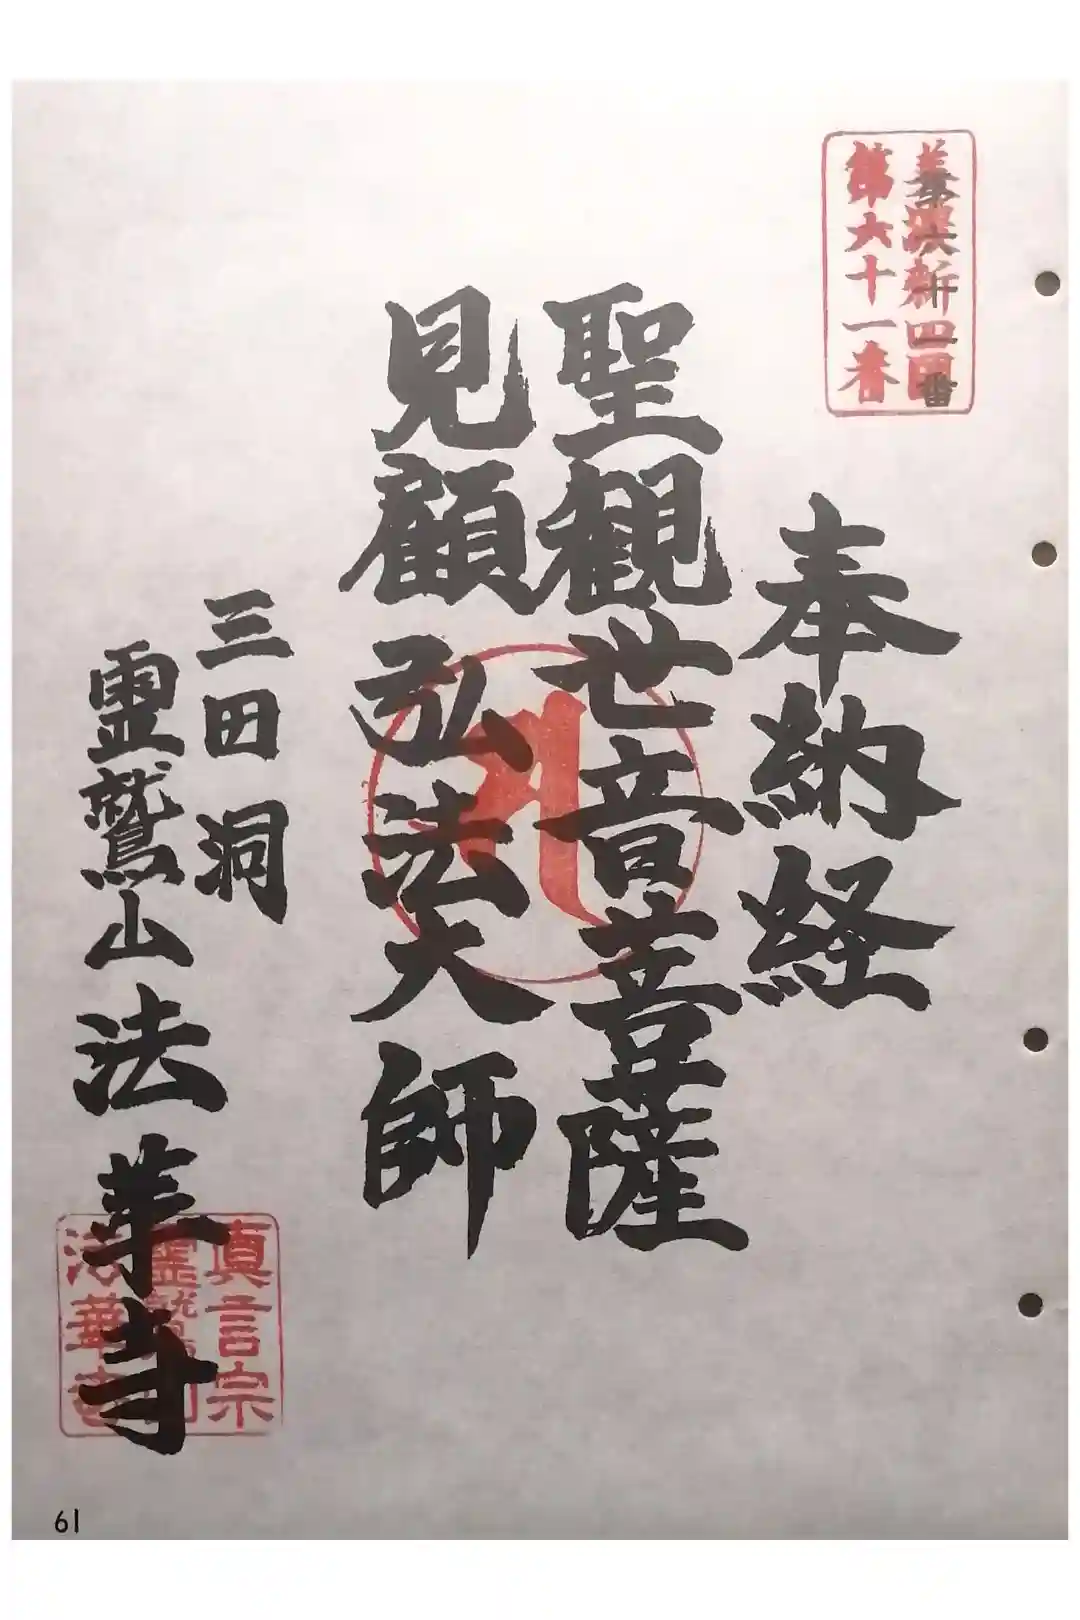 美濃新四国
第六十一番
奉納経
聖観世音菩薩
見顧弘法大師
三田洞
霊鷲山法華寺
真言宗
霊鷲山
法華寺
61